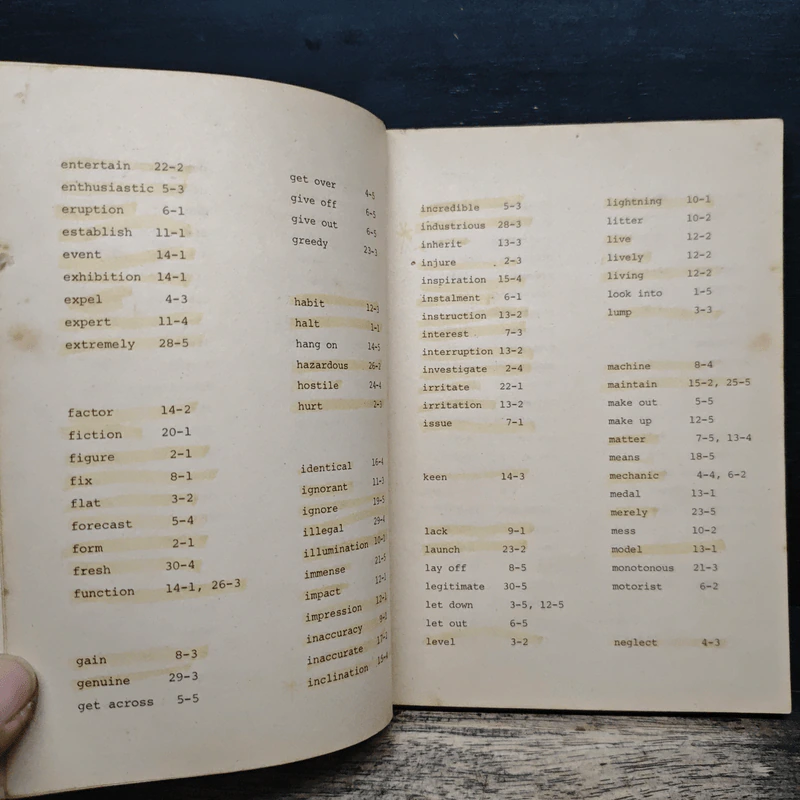 entertain 22-2
enthusiastic 5-3
eruption 6-1
establish 11-1
event 14-1
exhibition 14-1
expel 4-3
expert 11-4
extremely 28-5
factor 14-2
fiction 20-1
figure 2-1
fix 8-1
flat 3-2
forecast 5-4
form 2-1
fresh 30-4
function 14-1, 26-3
gain 8-3
genuine 29-3
get across 5-5
get over 4-5
give off 6-5
give out 6-5
greedy 23-3
habit 12-3
halt 1-1
hang on 14-5
hazardous 26-2
hostile 24-4
hurt 2-3
identical 16-4
ignorant 11-3
ignore 19-5
illegal 29-4
illumination 10-3
immense 21-5
impact 12-1
impression 12-1
inaccuracy 9-2
inaccurate 17-2
inclination 15-4
incredible 5-3
industrious 28-3
inherit 13-3
injure 2-3
inspiration 15-4
instalment 6-1
instruction 13-2
interest 7-3
interruption 13-2
investigate 2-4
irritate 22-1
irritation 13-2
issue 7-1
keen 14-3
lack 9-1
launch 23-2
lay off 8-5
legitimate 30-5
let down 3-5, 12-5
let out 6-5
level 3-2
lightning 10-1
litter 10-2
live 12-2
lively 12-2
living 12-2
look into 1-5
lump 3-3
machine 8-4
maintain 15-2, 25-5
make out 5-5
make up 12-5
matter 7-5, 13-4
means 18-5
mechanic 4-4, 6-2
medal 13-1
merely 23-5
mess 10-2
model 13-1
monotonous 21-3
motorist 6-2
neglect 4-3